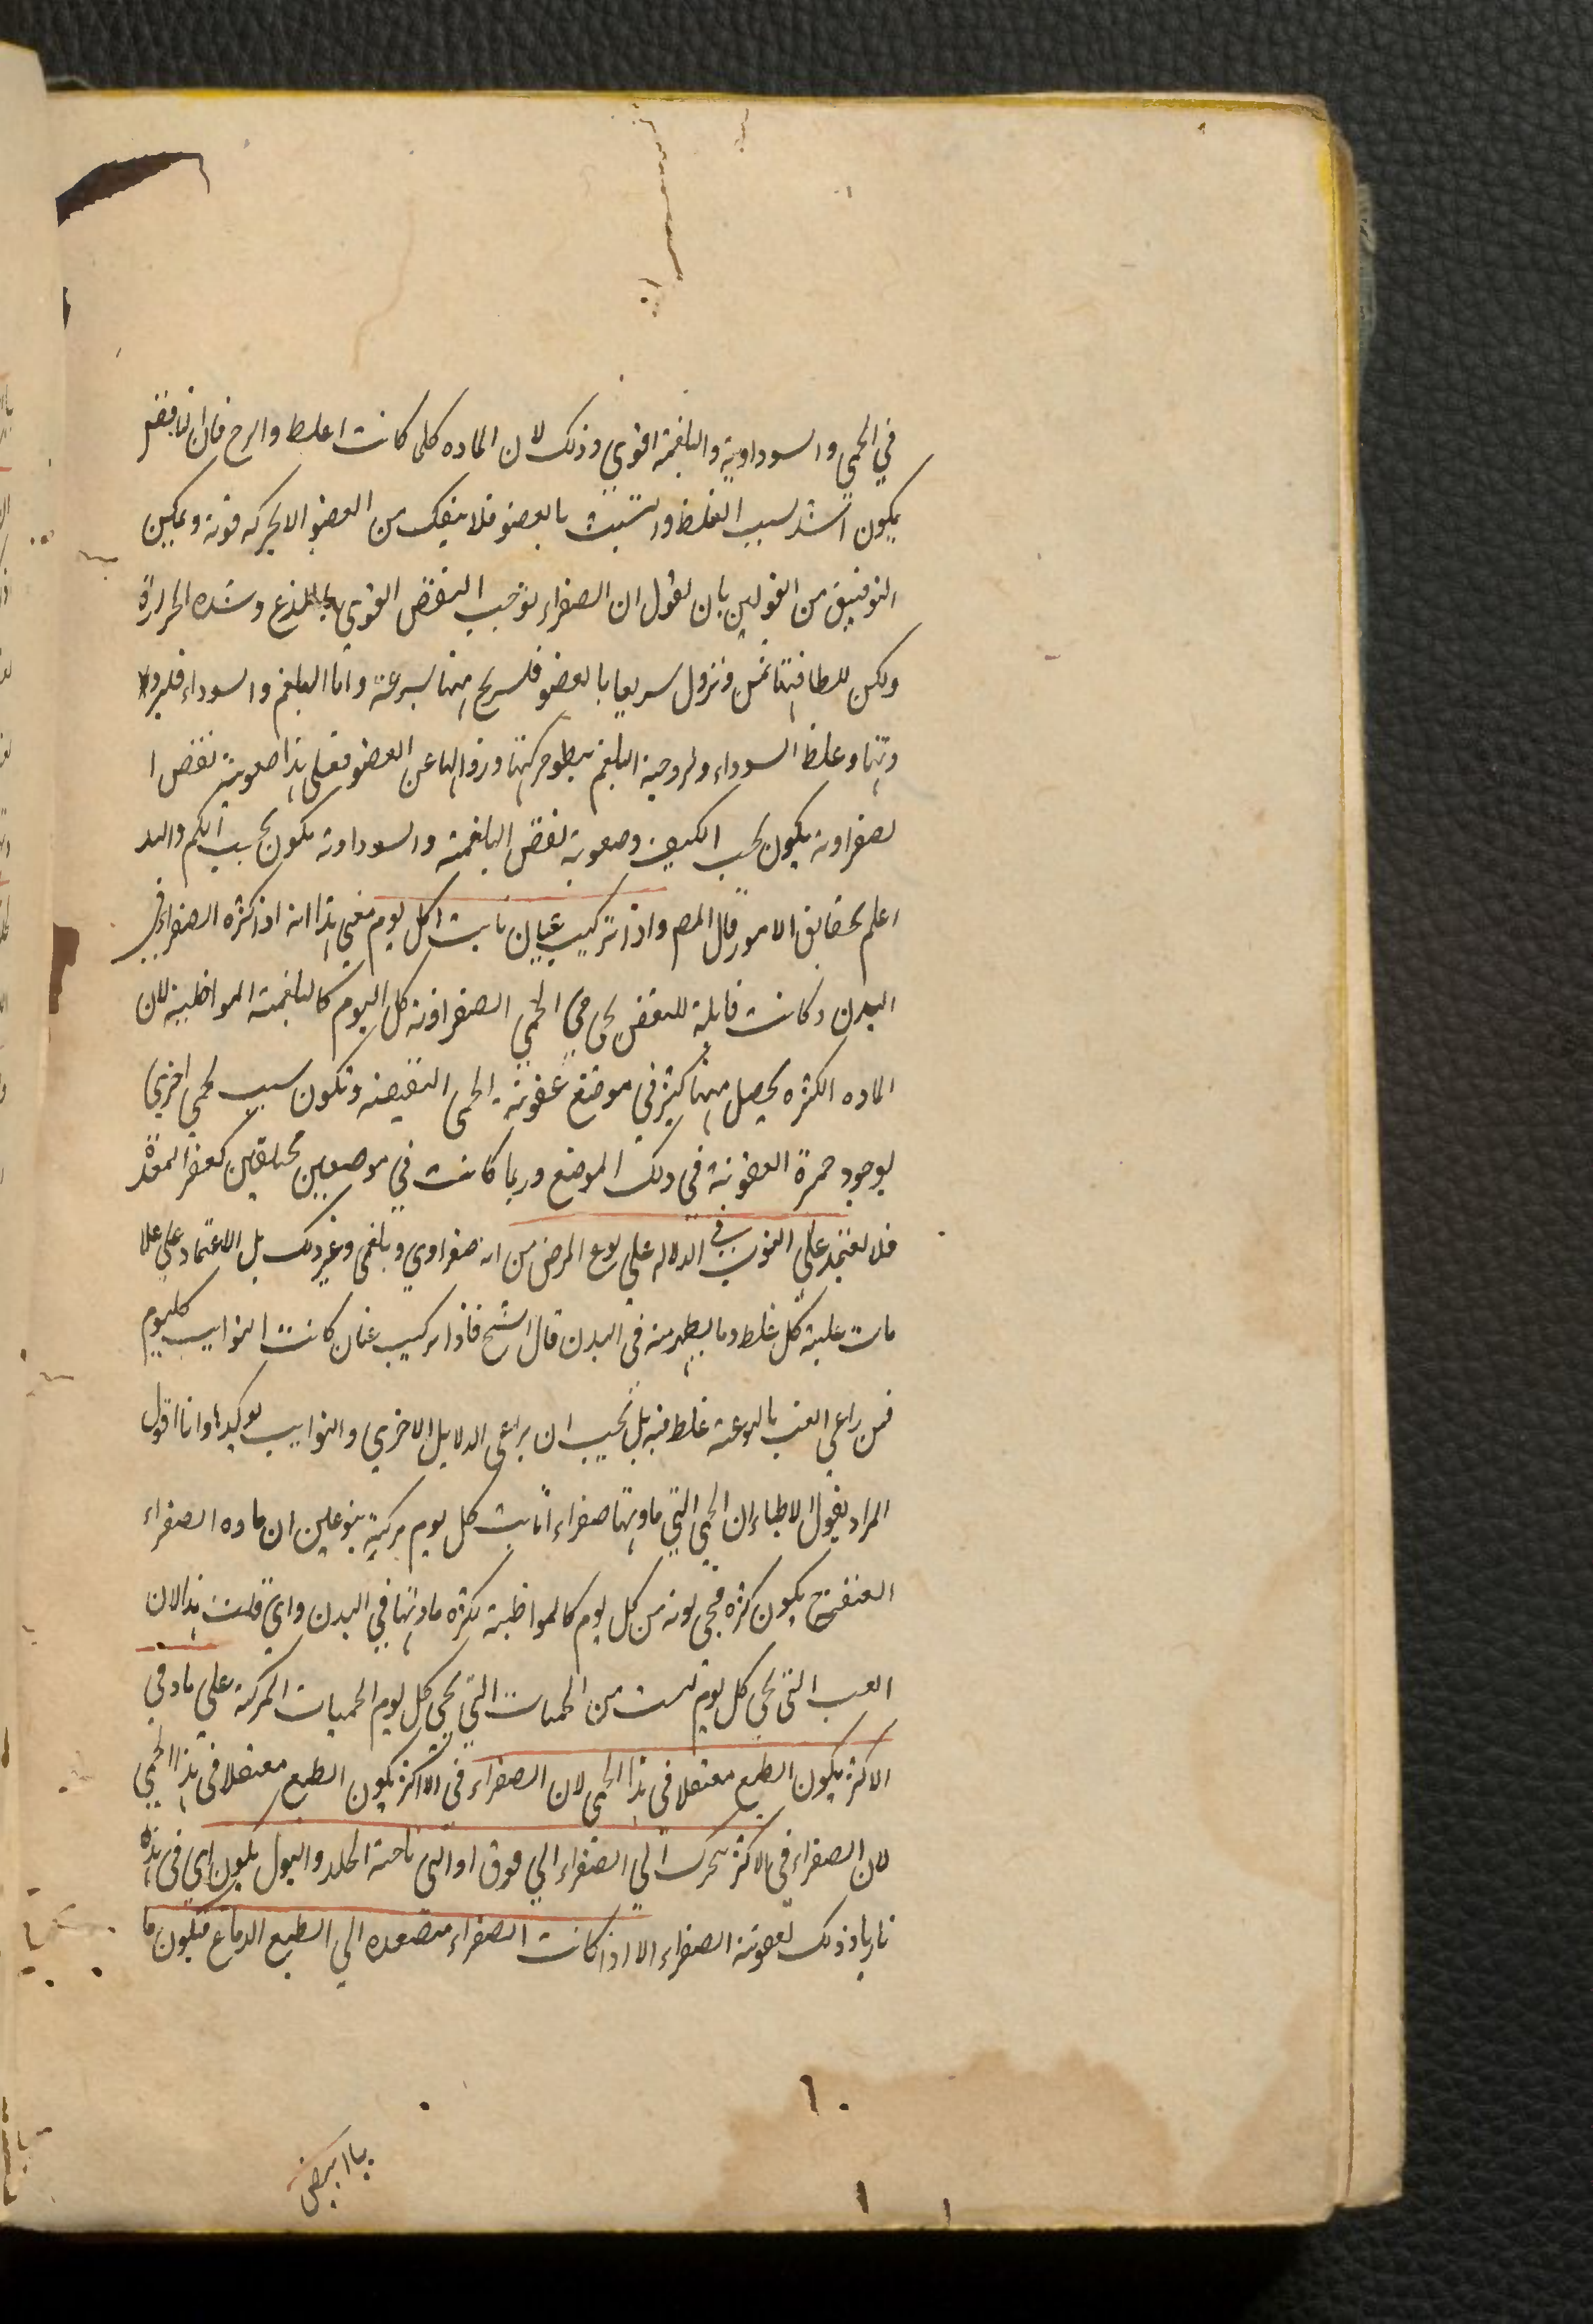 في الحمي والسوداوية والبلغمية اقوي وذلك لان الماده كلما كانت اغلظ والزج فان النافض
يكون اشد لسبب الغلظ والتشبث بالعضو فلا ينفك من العضو الا بحركه قوية ويمكن
التوفيق من القولين بان نقول ان الصفراء توجب النفض القوي للذع وشده الحرارة
ولكن للطافتها تنزول سريعا بالعضو فلسريح منها بسرعة واما البلغم والسوداء فلبرو
دتها وغلظ السوداء ولزوجية البلغم يبطو حركتها وزوالها عن العضو فعلي هذا صعوبية نفض ا
لصفراويه يكون بحسب الكيف وصعوبة نفض البلغمية والسوداويه يكون بحسب الكم والله
اعلم بحقايق الامور قال المص واذا تركيب غبان نابت كل يوم معني هذا انه اذا كثره الصفراء في
البدن وكانت قابلة للنفض يحي حمي الصفراويه كل اليوم كالبلغمية المواظبة لان
الماده الكثره يحصل منها كثير في موضع عفونة الحمى النقيصه وتكون سبب لحمي اخري
لوجود حمرة العفونية في ذلك الموضع وربما كانت في موضعين مختلفين كعفر المعدة
فلا تعتمد علي النوب في الدلاله علي نوع المرض من انه صفراوي وبلغمي وغير ذلك بل الاعتماد علي علا
مات غلبة كل خلط وما يظهر منه في البدن قال الشيخ فاذا تركيب غبان كانت النوايب كل يوم
فمن راعي الغب بالنوعية غلط فيه بل يجب ان يراعي الدلايل الاخري والنوايب توكيدا وانا اقول
المراد بقول الاطباء ان الحمي التي مادتها صفراء اتابت كل يوم مركبة بنوعين ان ماده الصفراء
العنفح يكون كثره فجي نوبه من كل يوم كالمواظبة لكثره مادتها في البدن واي قلت هذا لان
الغب التي يحي كل يوم ليست من الحميات التي يحي كل يوم الحميات المركبة علي ما وفي
الاكثر يكون الطبع معتقلا في هذا الحمى لان الصفراء في الاكثر يكون الطبع معتقلا في هذا الحمي
لان الصفراء في الاكثر يتحرك الي الصفراء الي فوق او التي ناحية الجلد والبول يكون اي في هذه
ناريا وذلك لعفونة الصفراء الا اذا كانت الصفراء متصعده الي الطبع الدماغ فيكون ما